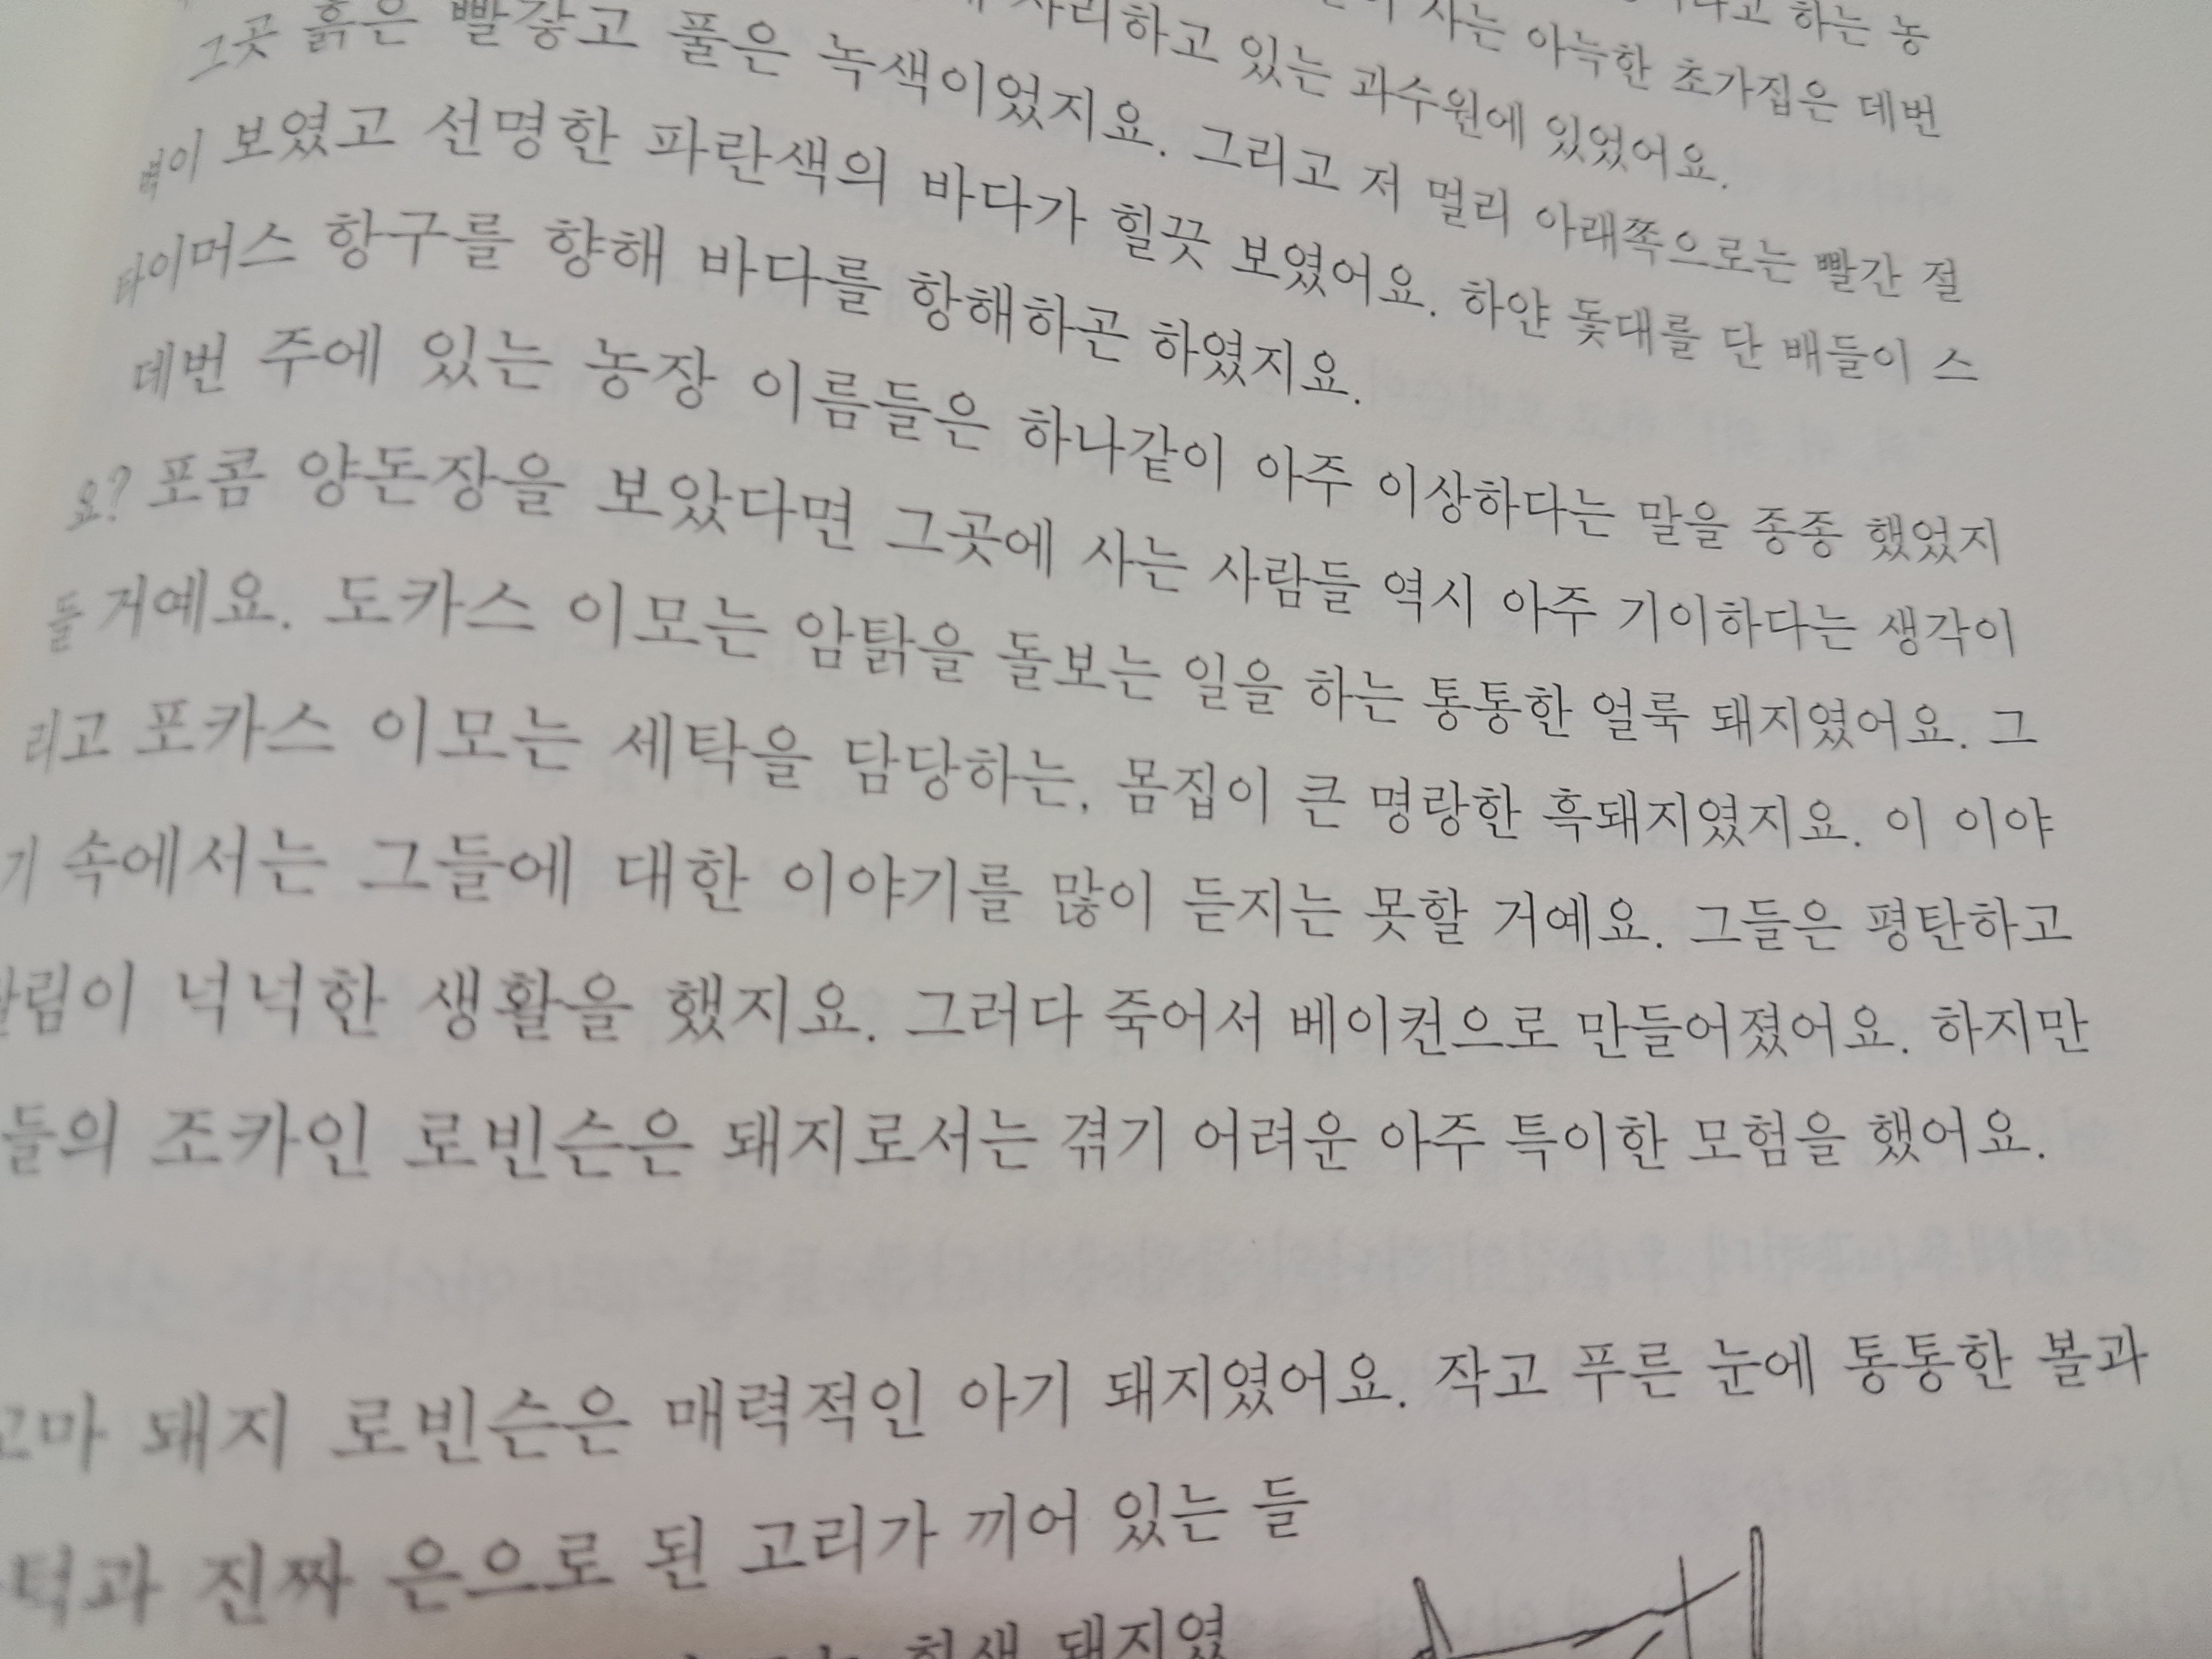 고 하는 농
사는 아늑한 초가집은 데번
자리하고 있는 과수원에 있었어요.
그곳 흙은 빨갛고 풀은 녹색이었지요. 그리고 저 멀리 아래쪽으로는 빨간 절
벽이 보였고 선명한 파란색의 바다가 힐끗 보였어요. 하얀 돛대를 단 배들이 스
타이머스 항구를 향해 바다를 항해하곤 하였지요.
데번 주에 있는 농장 이름들은 하나같이 아주 이상하다는 말을 종종 했었지
요? 포콤 양돈장을 보았다면 그곳에 사는 사람들 역시 아주 기이하다는 생각이
들 거예요. 도카스 이모는 암탉을 돌보는 일을 하는 통통한 얼룩 돼지였어요. 그
리고 포카스 이모는 세탁을 담당하는, 몸집이 큰 명랑한 흑돼지였지요. 이 이야
기 속에서는 그들에 대한 이야기를 많이 듣지는 못할 거예요. 그들은 평탄하고
림이 넉넉한 생활을 했지요. 그러다 죽어서 베이컨으로 만들어졌어요. 하지만
들의 조카인 로빈슨은 돼지로서는 겪기 어려운 아주 특이한 모험을 했어요.
꼬마 돼지 로빈슨은 매력적인 아기 돼지였어요. 작고 푸른 눈에 통통한 볼과
턱과 진짜 은으로 된 고리가 끼어 있는 들
흰색 돼지였